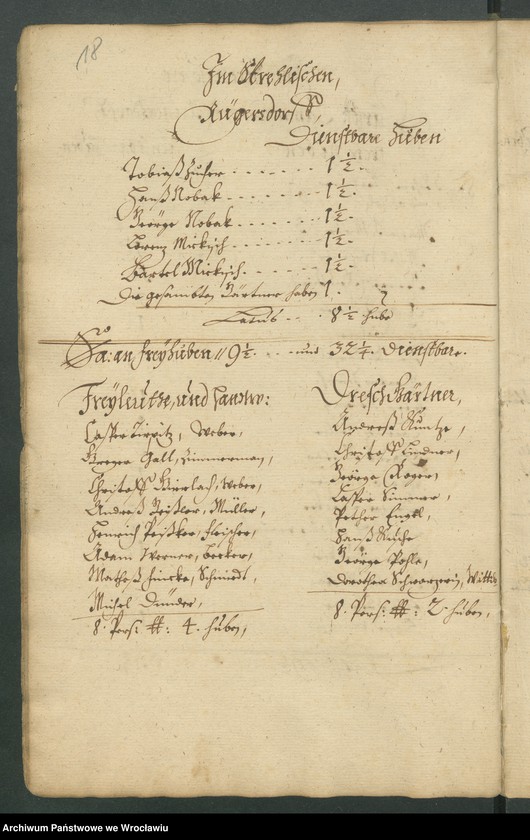 18
Im Strehlischen,
Rügersdorff,
Dienstbare huben
Tobiaß . . . . . . . 1 1/2.
Hanß Nobak . . . . . . 1 1/2.
George Nobak . . . . . . 1 1/2.
Lorenz Mickisch . . . . . 1 1/2.
Bartel Mickisch . . . . . 1 1/2.
Die gesambten Gärtner haben 1.
Latus . . . 8 1/2 hube
Sa: an freyhuben // 9 1/2. . . . und 32 1/4. Dienstbare.
Freyleuthe, und handw:
Caspar , Weber,
Gall, Zimmerman,
Christoff Gerlach, Weber,
Andreß Beißler, Müller,
Henrich , Fleischer,
Adam Werner, becker,
Matheß Fincke, Schmedt,
Michel
8. Pers: ff: 4. huben,
Dresch Gärtner,
Andreß Kuntze,
Christoff Lindner,
George Roger,
Caspar Simmer,
Petter Engel,
Hanß
George Pohle,
Dorothea Schwarzerin, Wittib
8. Pers: ff: 2. huben,
Archiwum Państwowe we Wrocławiu